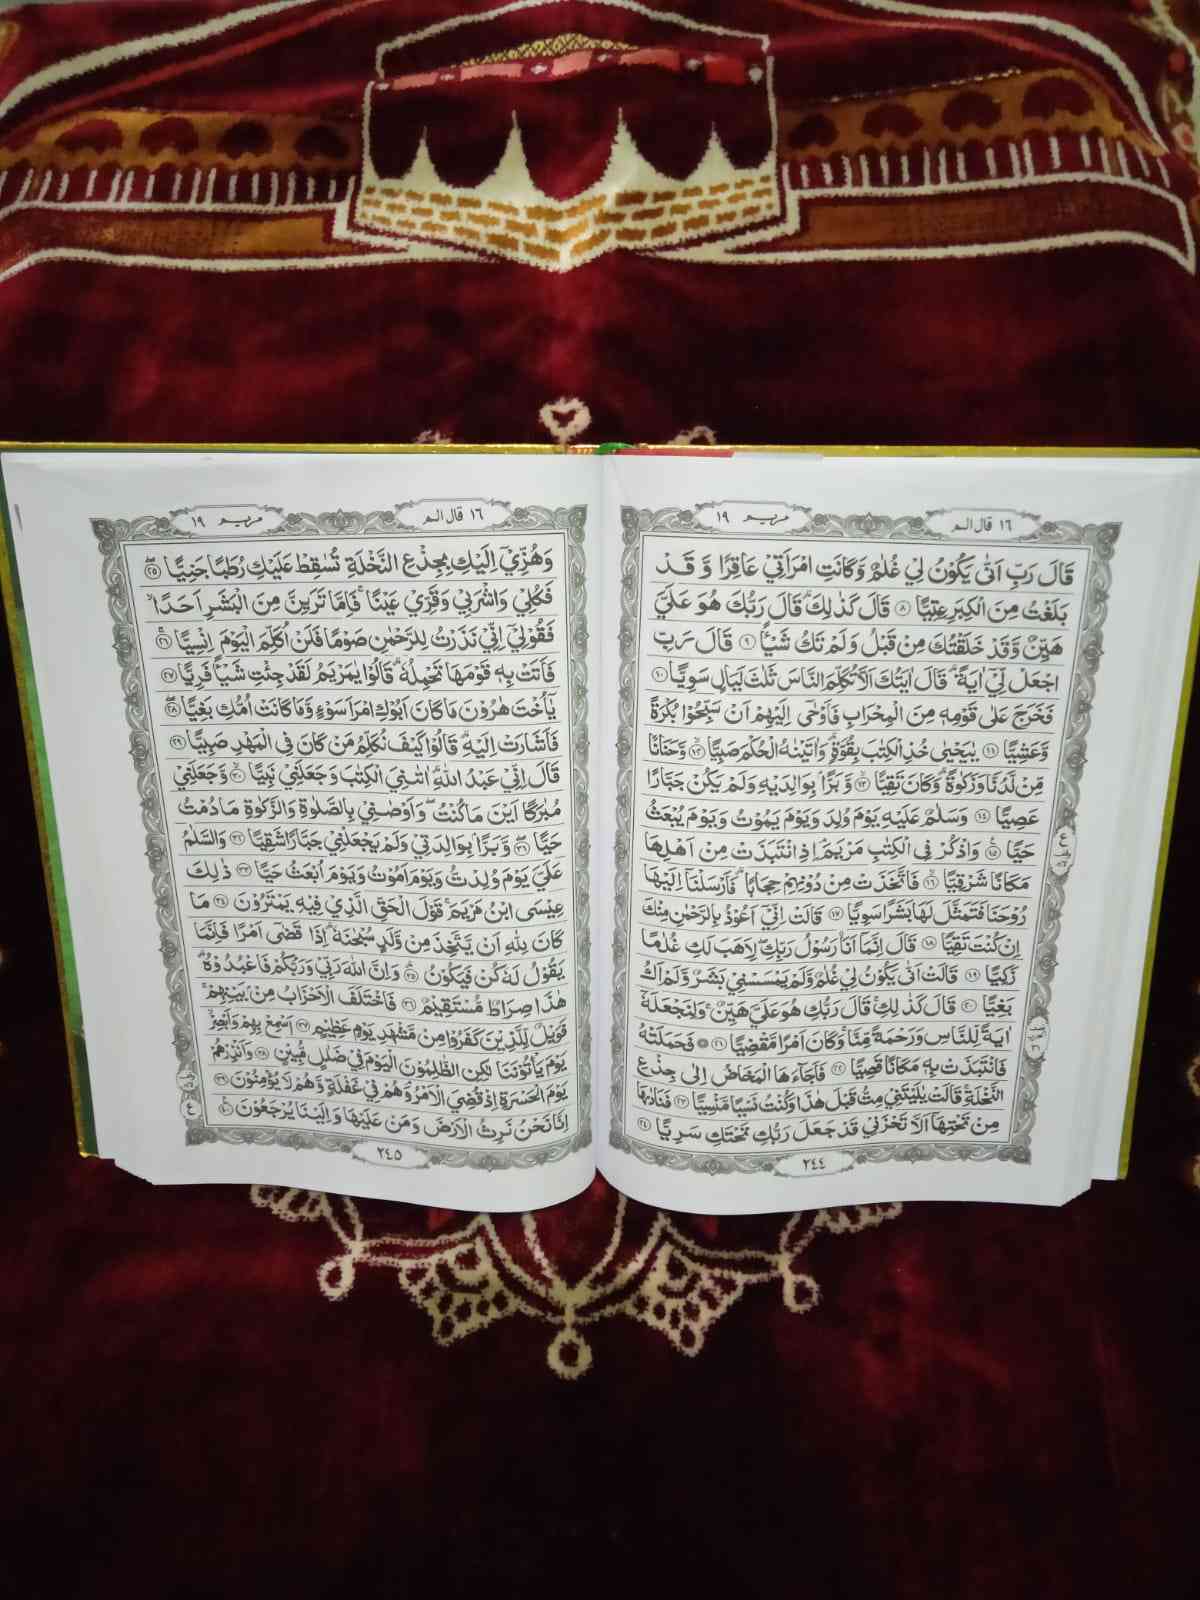 ١٦ قال الم
مريم ١٩
قَالَ رَبِّ اَنّٰى يَكُوْنُ لِيْ غُلٰمٌ وَّكَانَتِ امْرَاَتِيْ عَاقِرًا وَّ قَدْ
بَلَغْتُ مِنَ الْكِبَرِ عِتِيًّا ٨ قَالَ كَذٰلِكَ ۚ قَالَ رَبُّكَ هُوَ عَلَيَّ
هَيِّنٌ وَّقَدْ خَلَقْتُكَ مِنْ قَبْلُ وَلَمْ تَكُ شَيْـًٔا ٩ قَالَ رَبِّ
اجْعَلْ لِّيْٓ اٰيَةً ۗ قَالَ اٰيَتُكَ اَلَّا تُكَلِّمَ النَّاسَ ثَلٰثَ لَيَالٍ سَوِيًّا ١٠
فَخَرَجَ عَلٰى قَوْمِهٖ مِنَ الْمِحْرَابِ فَاَوْحٰٓى اِلَيْهِمْ اَنْ سَبِّحُوْا بُكْرَةً
وَّعَشِيًّا ١١ يٰيَحْيٰى خُذِ الْكِتٰبَ بِقُوَّةٍ ۗ وَاٰتَيْنٰهُ الْحُكْمَ صَبِيًّا ١٢ وَّحَنَانًا
مِّنْ لَّدُنَّا وَزَكٰوةً ۗ وَكَانَ تَقِيًّا ١٣ وَّ بَرًّاۢ بِوَالِدَيْهِ وَلَمْ يَكُنْ جَبَّارًا
عَصِيًّا ١٤ وَسَلٰمٌ عَلَيْهِ يَوْمَ وُلِدَ وَيَوْمَ يَمُوْتُ وَيَوْمَ يُبْعَثُ
حَيًّا ١٥ وَاذْكُرْ فِى الْكِتٰبِ مَرْيَمَ ۘ اِذِ انْتَبَذَتْ مِنْ اَهْلِهَا
مَكَانًا شَرْقِيًّا ١٦ فَاتَّخَذَتْ مِنْ دُوْنِهِمْ حِجَابًا ۗ فَاَرْسَلْنَآ اِلَيْهَا
رُوْحَنَا فَتَمَثَّلَ لَهَا بَشَرًا سَوِيًّا ١٧ قَالَتْ اِنِّيْٓ اَعُوْذُ بِالرَّحْمٰنِ مِنْكَ
اِنْ كُنْتَ تَقِيًّا ١٨ قَالَ اِنَّمَآ اَنَا۠ رَسُوْلُ رَبِّكِ ۖ لِاَهَبَ لَكِ غُلٰمًا
زَكِيًّا ١٩ قَالَتْ اَنّٰى يَكُوْنُ لِيْ غُلٰمٌ وَّلَمْ يَمْسَسْنِيْ بَشَرٌ وَّلَمْ اَكُ
بَغِيًّا ٢٠ قَالَ كَذٰلِكِ ۚ قَالَ رَبُّكِ هُوَ عَلَيَّ هَيِّنٌ ۚ وَلِنَجْعَلَهٗٓ
اٰيَةً لِّلنَّاسِ وَرَحْمَةً مِّنَّا ۚ وَكَانَ اَمْرًا مَّقْضِيًّا ٢١ فَحَمَلَتْهُ
فَانْتَبَذَتْ بِهٖ مَكَانًا قَصِيًّا ٢٢ فَاَجَآءَهَا الْمَخَاضُ اِلٰى جِذْعِ
النَّخْلَةِ ۚ قَالَتْ يٰلَيْتَنِيْ مِتُّ قَبْلَ هٰذَا وَكُنْتُ نَسْيًا مَّنْسِيًّا ٢٣ فَنَادٰىهَا
مِنْ تَحْتِهَآ اَلَّا تَحْزَنِيْ قَدْ جَعَلَ رَبُّكِ تَحْتَكِ سَرِيًّا ٢٤
٢٤٤
١٦ قال الم
مريم ١٩
وَهُزِّيْٓ اِلَيْكِ بِجِذْعِ النَّخْلَةِ تُسٰقِطْ عَلَيْكِ رُطَبًا جَنِيًّا ٢٥
فَكُلِيْ وَاشْرَبِيْ وَقَرِّيْ عَيْنًا ۚ فَاِمَّا تَرَيِنَّ مِنَ الْبَشَرِ اَحَدًا
فَقُوْلِيْٓ اِنِّيْ نَذَرْتُ لِلرَّحْمٰنِ صَوْمًا فَلَنْ اُكَلِّمَ الْيَوْمَ اِنْسِيًّا ٢٦
فَاَتَتْ بِهٖ قَوْمَهَا تَحْمِلُهٗ ۗ قَالُوْا يٰمَرْيَمُ لَقَدْ جِئْتِ شَيْـًٔا فَرِيًّا ٢٧
يٰٓاُخْتَ هٰرُوْنَ مَا كَانَ اَبُوْكِ امْرَاَ سَوْءٍ وَّمَا كَانَتْ اُمُّكِ بَغِيًّا ٢٨
فَاَشَارَتْ اِلَيْهِ ۗ قَالُوْا كَيْفَ نُكَلِّمُ مَنْ كَانَ فِى الْمَهْدِ صَبِيًّا ٢٩
قَالَ اِنِّيْ عَبْدُ اللّٰهِ ۗ اٰتٰىنِيَ الْكِتٰبَ وَجَعَلَنِيْ نَبِيًّا ٣٠ وَّجَعَلَنِيْ
مُبٰرَكًا اَيْنَ مَا كُنْتُ ۖ وَاَوْصٰنِيْ بِالصَّلٰوةِ وَالزَّكٰوةِ مَا دُمْتُ
حَيًّا ٣١ وَّ بَرًّاۢ بِوَالِدَتِيْ وَلَمْ يَجْعَلْنِيْ جَبَّارًا شَقِيًّا ٣٢ وَالسَّلٰمُ
عَلَيَّ يَوْمَ وُلِدْتُّ وَيَوْمَ اَمُوْتُ وَيَوْمَ اُبْعَثُ حَيًّا ٣٣ ذٰلِكَ
عِيْسَى ابْنُ مَرْيَمَ ۚ قَوْلَ الْحَقِّ الَّذِيْ فِيْهِ يَمْتَرُوْنَ ٣٤ مَا
كَانَ لِلّٰهِ اَنْ يَّتَّخِذَ مِنْ وَّلَدٍ سُبْحٰنَهٗ ۗ اِذَا قَضٰٓى اَمْرًا فَاِنَّمَا
يَقُوْلُ لَهٗ كُنْ فَيَكُوْنُ ٣٥ وَاِنَّ اللّٰهَ رَبِّيْ وَرَبُّكُمْ فَاعْبُدُوْهُ ۗ
هٰذَا صِرَاطٌ مُّسْتَقِيْمٌ ٣٦ فَاخْتَلَفَ الْاَحْزَابُ مِنْۢ بَيْنِهِمْ ۚ
فَوَيْلٌ لِّلَّذِيْنَ كَفَرُوْا مِنْ مَّشْهَدِ يَوْمٍ عَظِيْمٍ ٣٧ اَسْمِعْ بِهِمْ وَاَبْصِرْ
يَوْمَ يَاْتُوْنَنَا لٰكِنِ الظّٰلِمُوْنَ الْيَوْمَ فِيْ ضَلٰلٍ مُّبِيْنٍ ٣٨ وَاَنْذِرْهُمْ
يَوْمَ الْحَسْرَةِ اِذْ قُضِيَ الْاَمْرُ ۘ وَهُمْ فِيْ غَفْلَةٍ وَّهُمْ لَا يُؤْمِنُوْنَ ٣٩
اِنَّا نَحْنُ نَرِثُ الْاَرْضَ وَمَنْ عَلَيْهَا وَاِلَيْنَا يُرْجَعُوْنَ ٤٠
٢٤٥